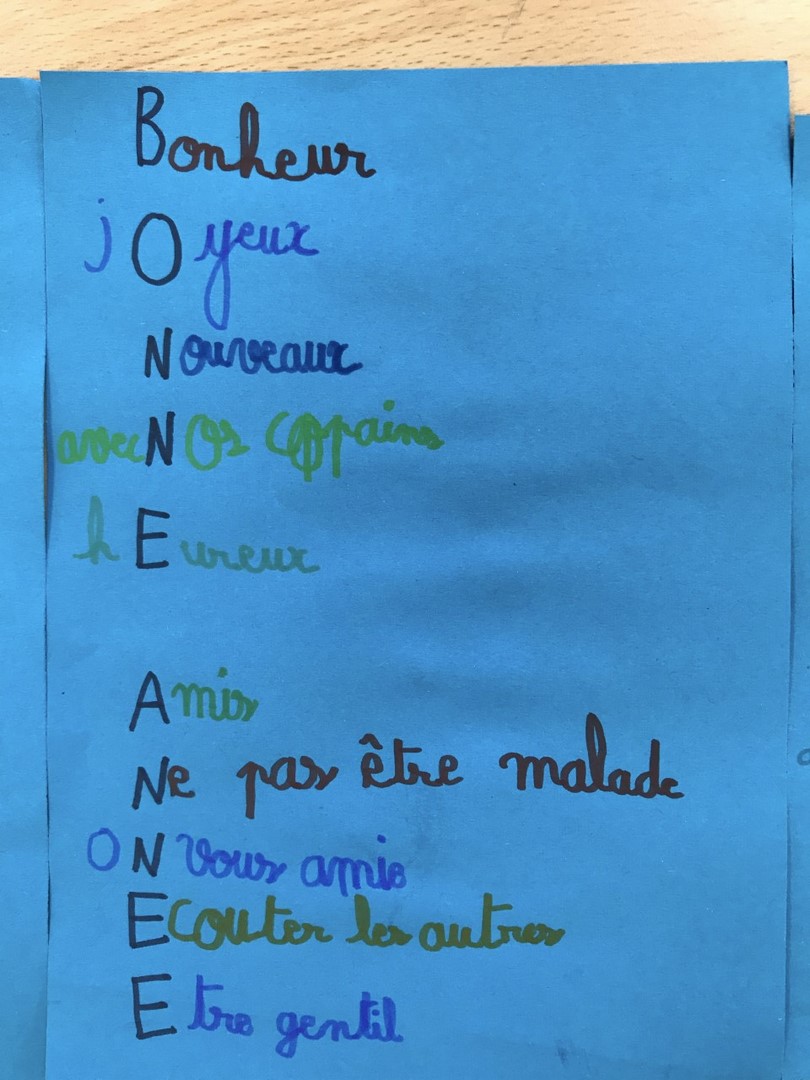 Bonheur
jOyeux
Nouveaux
avec NOs copains
hEureux
Amis
Ne pas être malade
ON vous amie
Ecouter les autres
Etre gentil